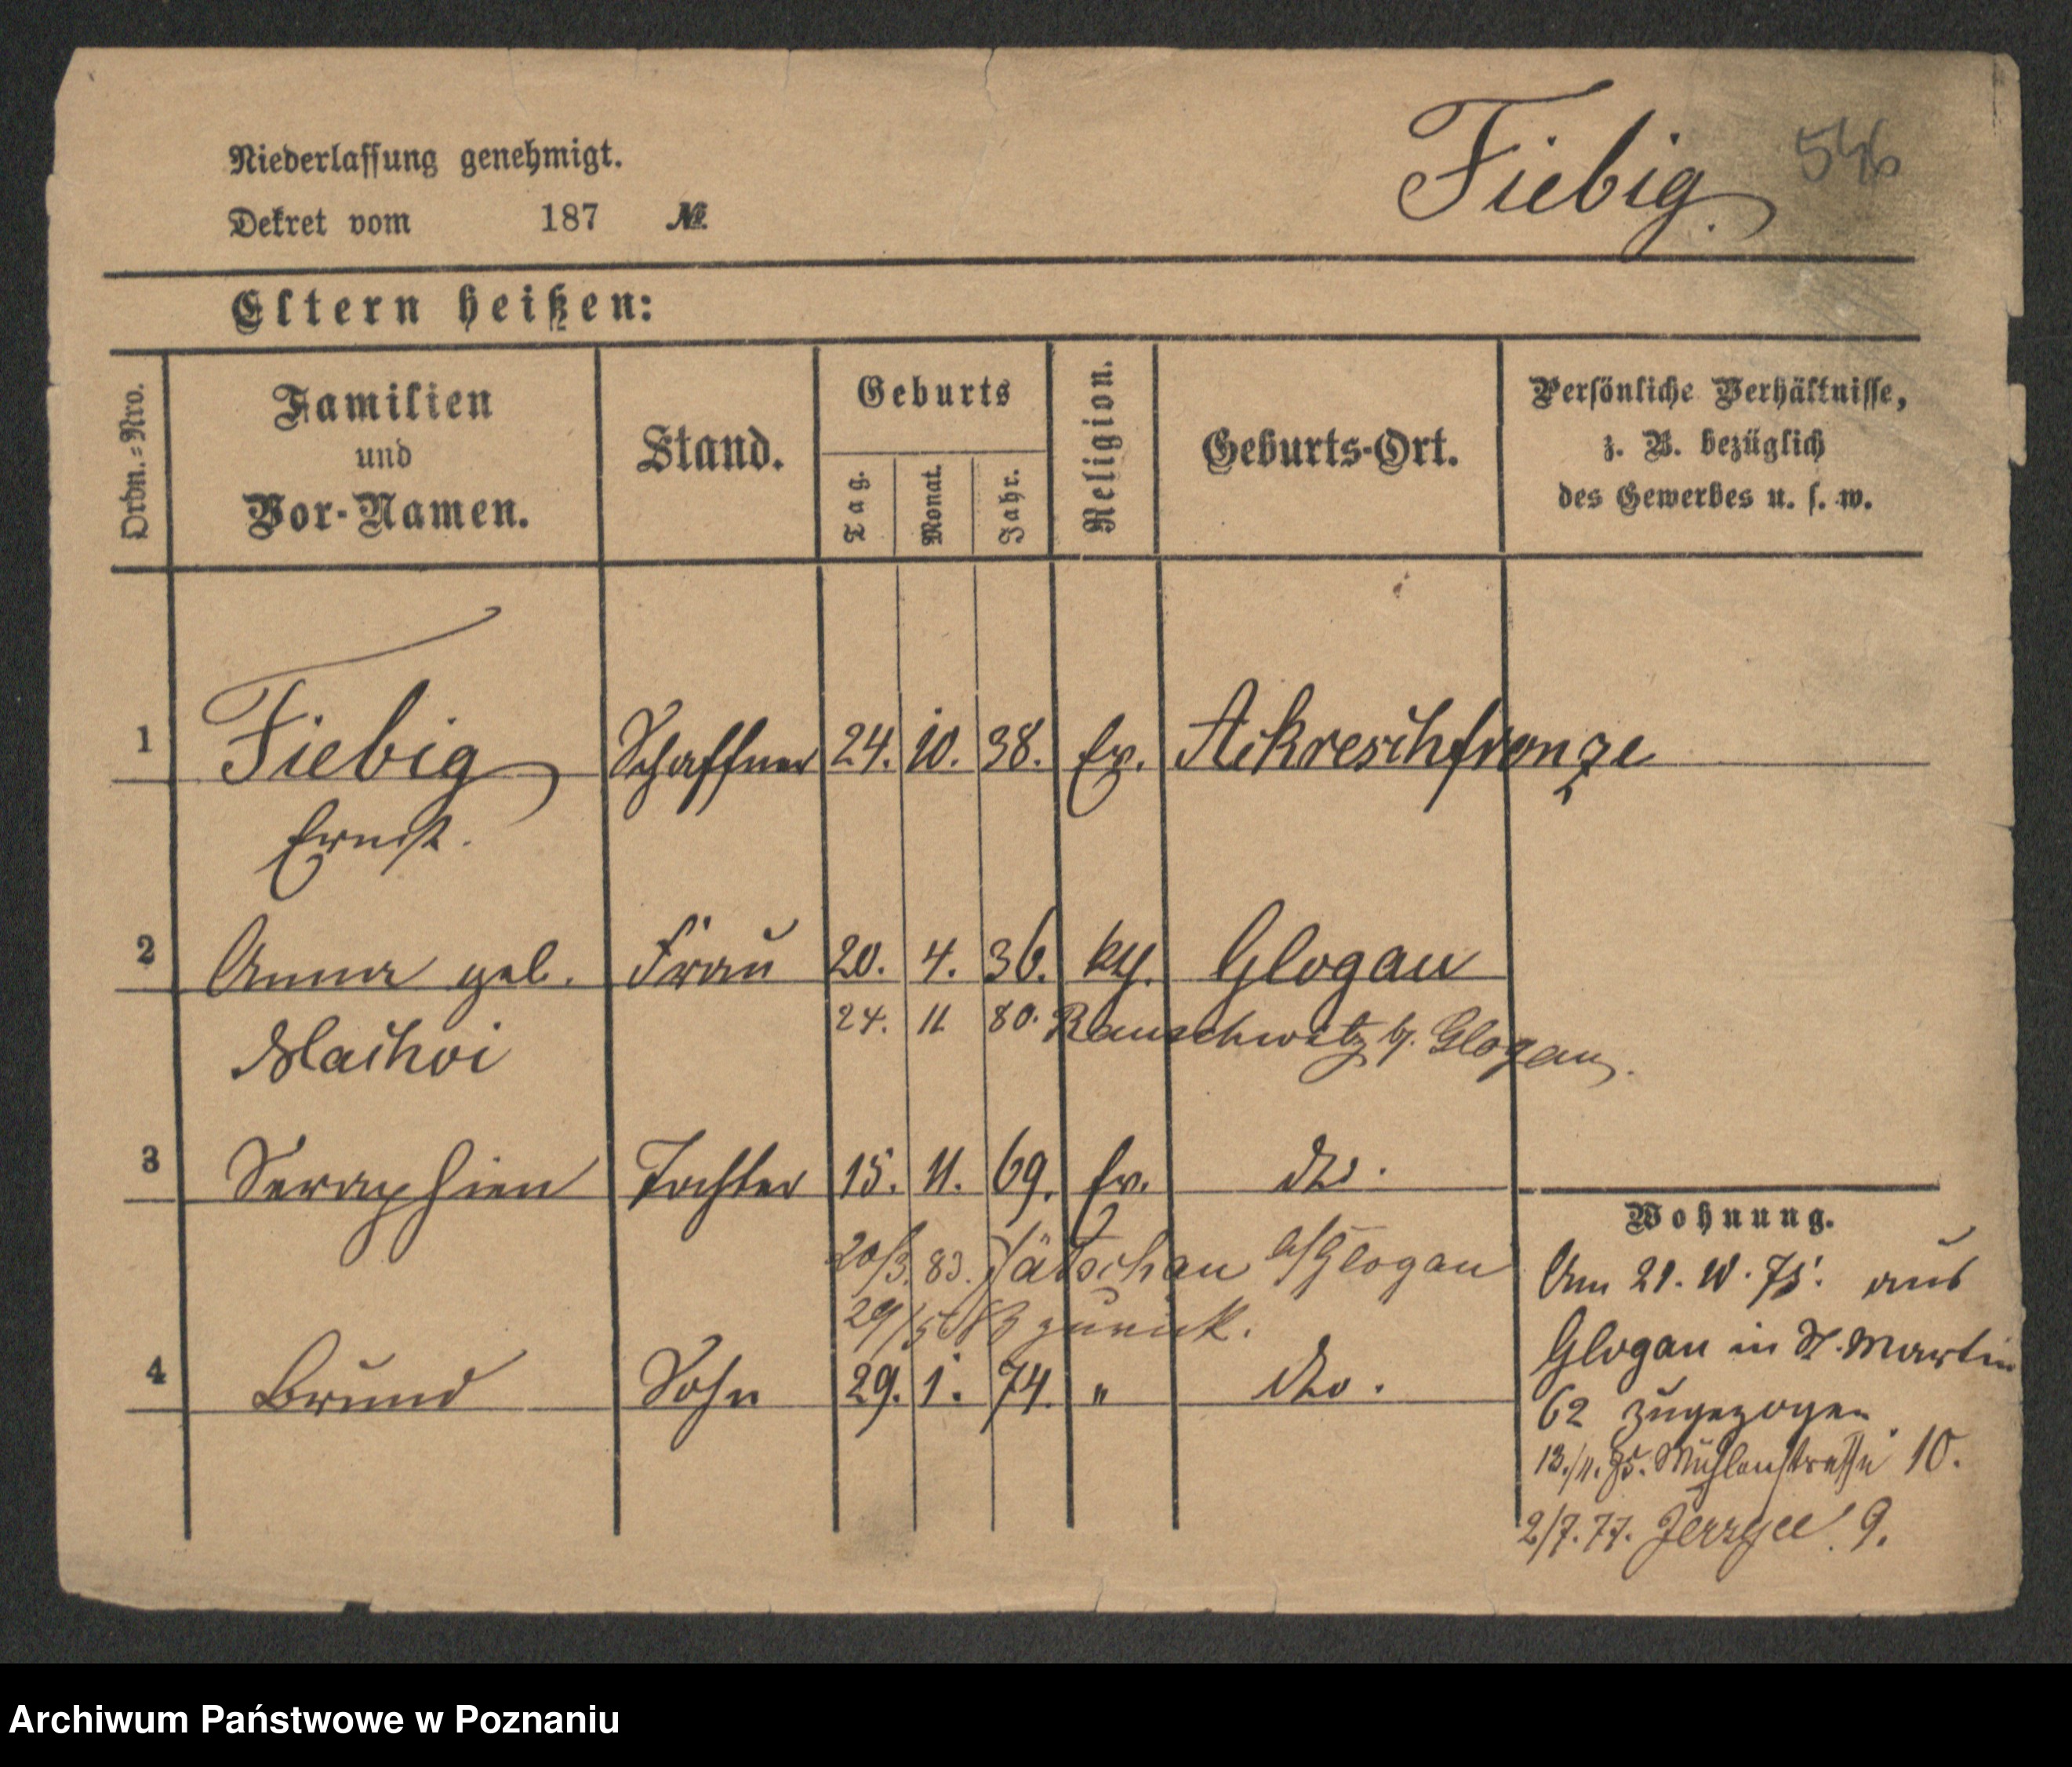 Niederlassung genehmigt.
Dekret vom 187 №
Fiebig.
Eltern heißen:
Ordn.-Nro.
Familien
und
Vor-Namen.
Stand.
Geburts
Tag.
Monat.
Jahr.
Religion.
Geburts-Ort.
Persönliche Verhältnisse,
z. B. bezüglich
des Gewerbes u. s. w.
1 Fiebig Schaffner 24. 10. 38. Ev.
Ernst.
2 Anna geb. Frau 20. 4. 36. Glogau
24. 11 80. Rauschwitz b. Glogau.
3 Seraphien Tochter 15. 11. 69. Ev. dto.
20/3. 83. Jätschau b/Glogau
29/5 83 zurück.
4 Bruno Sohn 29. 1. 74. " dto.
Wohnung.
Am 21. 10. 75. aus
Glogau in St. Martin
62 zugezogen
13./11. 75. Mühlenstraße 10.
2/7. 77. 9.